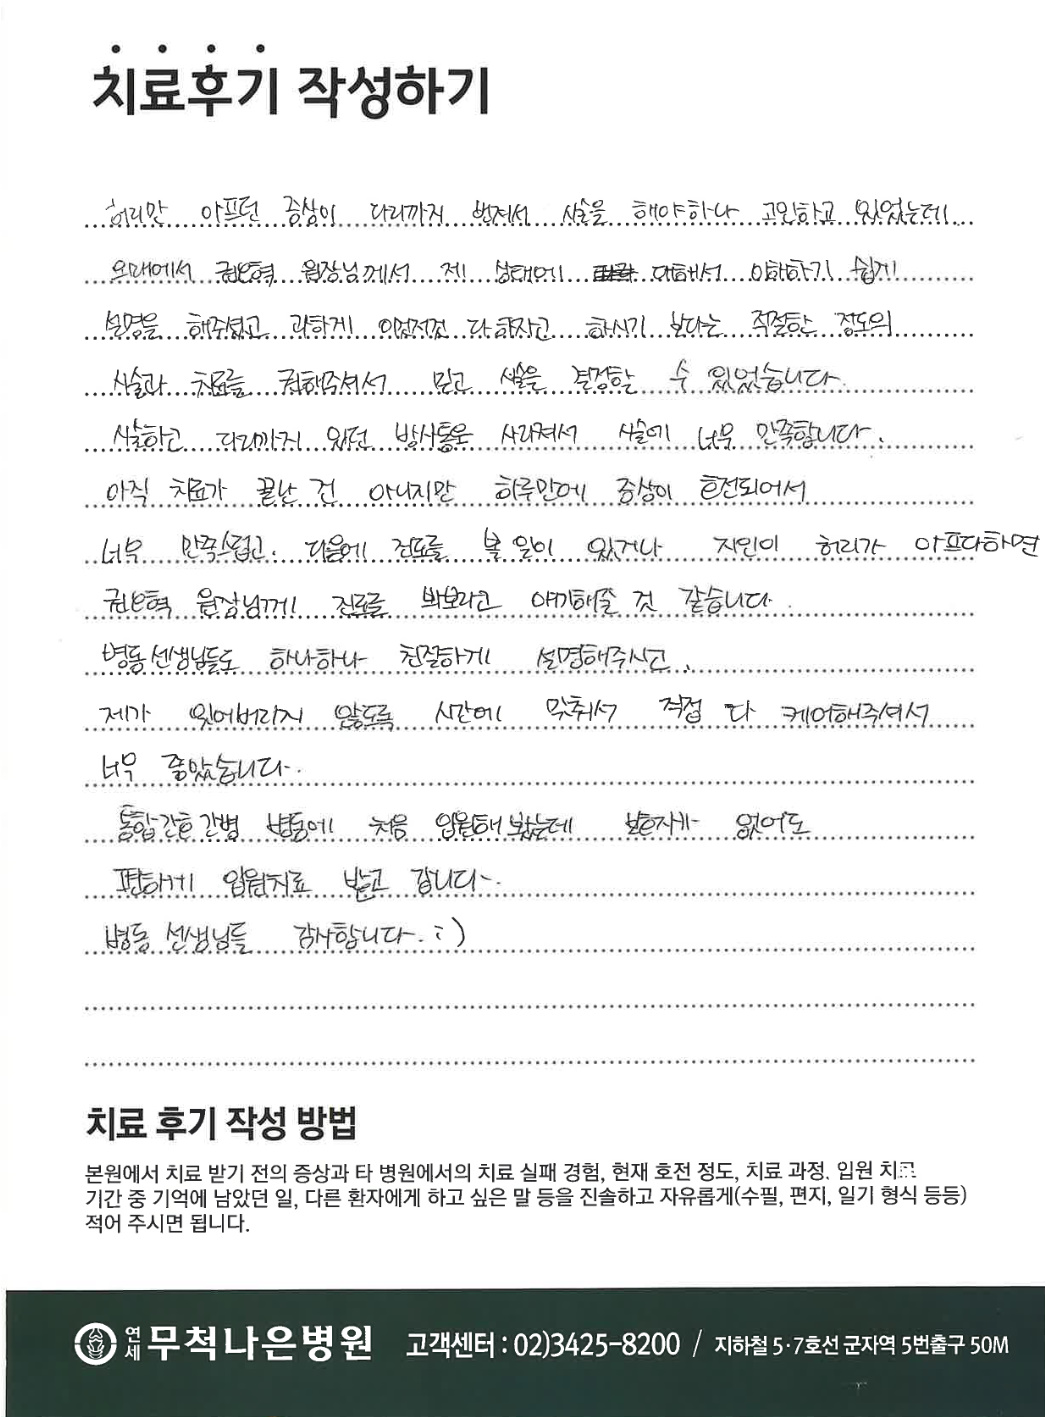 치료후기 작성하기
허리만 아프던 증상이 다리까지 번져서 시술을 해야하나 고민하고 있었는데
외래에서 권으혁 원장님께서 제 상태에 대해서 이해하기 쉽게
설명을 해주셨고 과하게 이것저것 다 하자고 하시기 보다는 적절한 정도의
시술과 치료를 권해주셔서 믿고 시술을 결정할 수 있었습니다.
시술하고 다리까지 있던 방사통은 사라져서 시술에 너무 만족합니다.
아직 치료가 끝난 건 아니지만 하루만에 증상이 호전되어서
너무 만족스럽고. 다음에 진료를 볼 일이 있거나 지인이 허리가 아프다하면
권으혁 원장님께 진료를 봐보라고 얘기해줄 것 같습니다.
병동선생님들도 하나하나 친절하게 설명해주시고,
제가 잊어버리지 않도록 시간에 맞춰서 직접 다 케어해주셔서
너무 좋았습니다.
통합간호간병 병동에 처음 입원해봤는데 보호자가 없어도
편하게 입원치료 받고 갑니다.
병동 선생님들 감사합니다. :)
치료 후기 작성 방법
본원에서 치료 받기 전의 증상과 타 병원에서의 치료 실패 경험, 현재 호전 정도, 치료 과정, 입원 치료
기간 중 기억에 남았던 일, 다른 환자에게 하고 싶은 말 등을 진솔하고 자유롭게(수필, 편지, 일기 형식 등등)
적어 주시면 됩니다.
연세 무척나은병원 고객센터 : 02)3425-8200 / 지하철 5·7호선 군자역 5번출구 50M